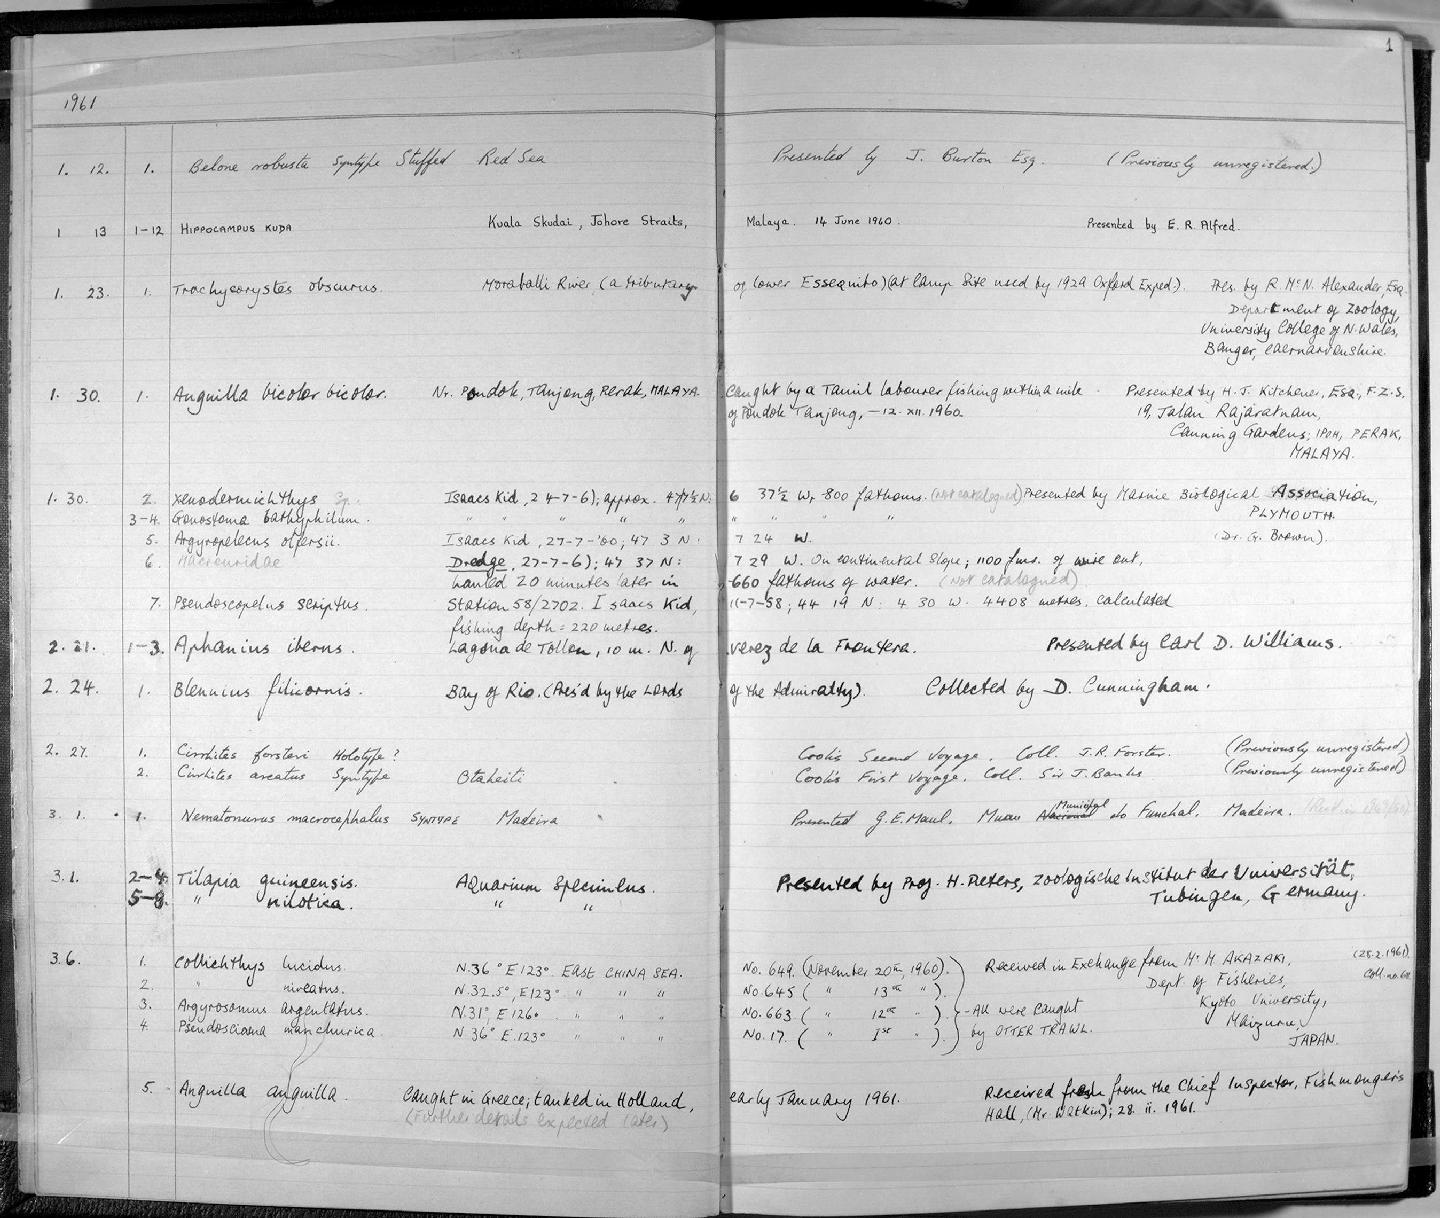 1
1961
1. 12. 1. Belone robusta Syntype Stuffed Red Sea Presented by J. Burton Esq. (Previously unregistered.)
1 13 1-12 HIPPOCAMPUS KUDA Kuala Skudai, Johore Straits, Malaya. 14 June 1960. Presented by E. R. Alfred.
1. 23. 1. Trachycorystes obscurus. Moraballi River (a tributary of lower Essequibo) (at camp site used by 1929 Oxford Exped.). Pres. by R. McN. Alexander, Esq.
Department of Zoology,
University College of N. Wales,
Bangor, Caernarvonshire.
1. 30. 1. Anguilla bicolor bicolor. Nr. Pondok, Tanjong, Perak, MALAYA. Caught by a Tamil labourer fishing within a mile Presented by H. J. Kitchener, Esq., F.Z.S.
of Pondok Tanjong, - 12. XII. 1960. 19, Jalan Rajaratnam,
Canning Gardens, IPOH, PERAK,
MALAYA.
1. 30. 2. Xenodermichthys Sp. Isaacs Kid, 24-7-61; approx. 47 N: 6 37½ W, 800 fathoms. (not catalogued) Presented by Marine Biological Association,
3-4. Gonostoma bathyphilum. " " " " " " " " " PLYMOUTH.
5. Argyropelecus olfersii. Isaacs Kid, 27-7-'60; 47 3 N: 7 24 W. (Dr. G. Brown).
6. Macrouridae Dredge, 27-7-61; 47 37 N: 7 29 W. On continental slope; 1100 fms. of wire out,
hauled 20 minutes later in 660 fathoms of water. (Not catalogued)
7. Pseudoscopelus scriptus. Station 58/2702. Isaacs Kid, 11-7-58; 44 19 N: 4 30 W. 4408 metres, calculated
fishing depth = 220 metres.
2. 21. 1-3. Aphanius iberus. Laguna de Tollon, 10 m. N. of Jerez de la Frontera. Presented by Carl D. Williams.
2. 24. 1. Blennius filicornis. Bay of Rio. (Pres'd by the Lords of the Admiralty). Collected by D. Cunningham.
2. 27. 1. Cirrhites forsteri Holotype? Cook's Second Voyage. Coll. J.R. Forster. (Previously unregistered)
2. Cirrhites arcatus Syntype Otaheiti Cook's First Voyage. Coll. Sir J. Banks. (Previously unregistered)
3. 1. 1. Nematonurus macrocephalus SYNTYPE Madeira Presented G.E. Maul, Museu Nacional Municipal do Funchal, Madeira.
3.1. 2-4. Tilapia guineensis. Aquarium Specimens. Presented by Prof. H. Peters, Zoologische Institut der Universität,
5-8. " nilotica. " " Tubingen, Germany.
3.6. 1. Collichthys lucidus. N.36° E 123° EAST CHINA SEA. No. 649. (November 20th, 1960). Received in Exchange from Mr. M. AKAZAKI, (25.2.1961).
2. " niveatus. N.32.5°, E123° " " " No 645 ( " 13th " ). Dept. of Fisheries, Coll. no.
3. Argyrosomus argentatus. N.31°, E 126° " " " No.663. ( " 12th " ). - All were caught Kyoto University,
4. Pseudosciaena manchurica. N.36° E.123° " " " No.17. ( " 1st " ). by OTTER TRAWL. Maizuru,
JAPAN.
5. Anguilla anguilla. Caught in Greece; tanked in Holland, early January 1961. Received fresh from the Chief Inspector, Fishmongers
(Further details expected later) Hall, (Mr. Watkin); 28. ii. 1961.